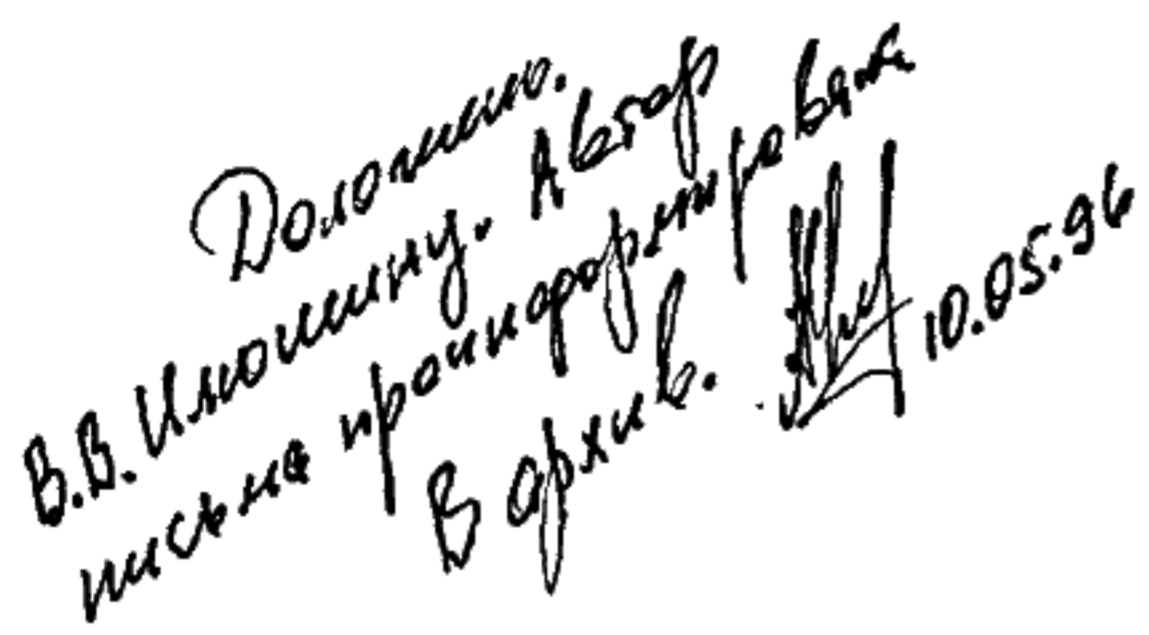 Доложено.
В.В. Илюшину. Автор
письма проинформирован.
В архив.
10.05.96